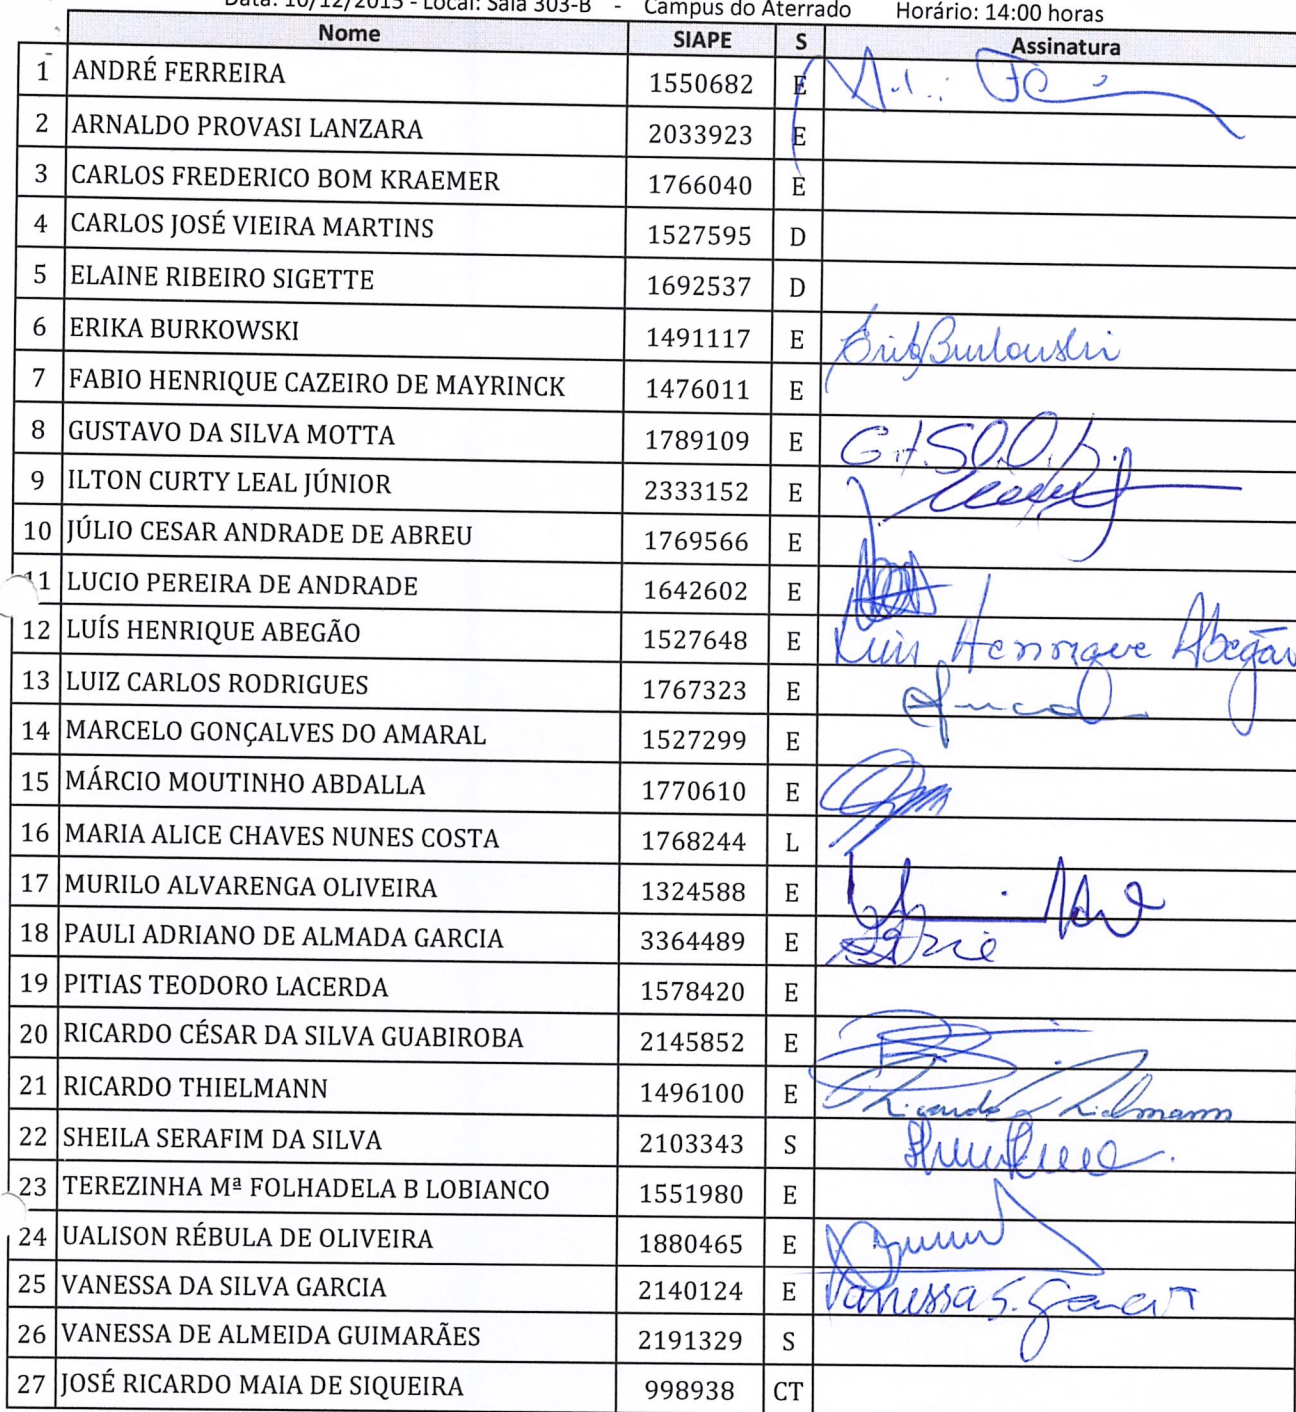 Data: 10/12/2015 - Local: Sala 303-B - Campus do Aterrado Horário: 14:00 horas
Nome SIAPE S Assinatura
1 ANDRÉ FERREIRA 1550682 E
2 ARNALDO PROVASI LANZARA 2033923 E
3 CARLOS FREDERICO BOM KRAEMER 1766040 E
4 CARLOS JOSÉ VIEIRA MARTINS 1527595 D
5 ELAINE RIBEIRO SIGETTE 1692537 D
6 ERIKA BURKOWSKI 1491117 E Erika Burkowski
7 FABIO HENRIQUE CAZEIRO DE MAYRINCK 1476011 E
8 GUSTAVO DA SILVA MOTTA 1789109 E
9 ILTON CURTY LEAL JÚNIOR 2333152 E
10 JÚLIO CESAR ANDRADE DE ABREU 1769566 E
11 LUCIO PEREIRA DE ANDRADE 1642602 E
12 LUÍS HENRIQUE ABEGÃO 1527648 E Luís Henrique Abegão
13 LUIZ CARLOS RODRIGUES 1767323 E
14 MARCELO GONÇALVES DO AMARAL 1527299 E
15 MÁRCIO MOUTINHO ABDALLA 1770610 E
16 MARIA ALICE CHAVES NUNES COSTA 1768244 L
17 MURILO ALVARENGA OLIVEIRA 1324588 E
18 PAULI ADRIANO DE ALMADA GARCIA 3364489 E
19 PITIAS TEODORO LACERDA 1578420 E
20 RICARDO CÉSAR DA SILVA GUABIROBA 2145852 E
21 RICARDO THIELMANN 1496100 E Ricardo Thielmann
22 SHEILA SERAFIM DA SILVA 2103343 S
23 TEREZINHA Mª FOLHADELA B LOBIANCO 1551980 E
24 UALISON RÉBULA DE OLIVEIRA 1880465 E
25 VANESSA DA SILVA GARCIA 2140124 E Vanessa S. Garcia
26 VANESSA DE ALMEIDA GUIMARÃES 2191329 S
27 JOSÉ RICARDO MAIA DE SIQUEIRA 998938 CT